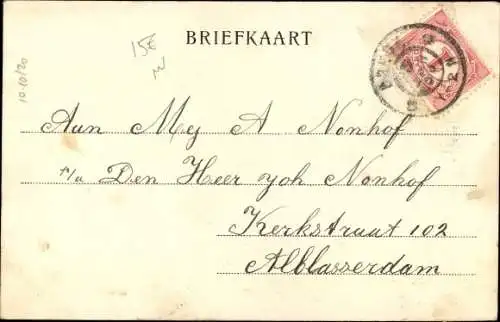 BRIEFKAART
15€
10.10/20
Aan Mej A Nonhof
p/a Den Heer Joh Nonhof
Kerkstraat 102
Alblasserdam